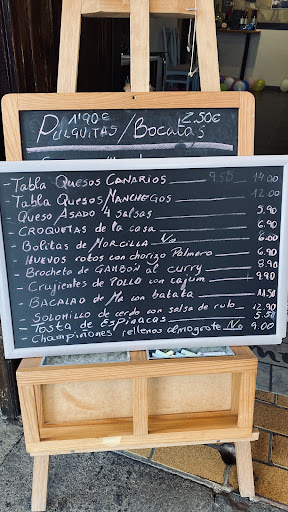 1'90€ 2.50€
PULGUITAS/Bocatas
- Tabla Quesos CANARIOS 14.00
- Tabla Quesos MANCHEGOS 12.00
Queso ASADO 4 salsas 5.90
- CROQUETAS de la casa 6.90
- Bolitas de MORCILLA No 6.00
- HUEVOS rotos con chorizo Palmero 6.90
- Brocheta de GAMBÓN al curry 8.90
- Crujientes de POLLO con cajún 9.90
- BACALAO de Ma con batata 11.50
- SOLOMILLO de cerdo con salsa de rub. 12.90
- Tosta de ESPINACAS 5.50
- Champiñones rellenos almogrote No 9.00